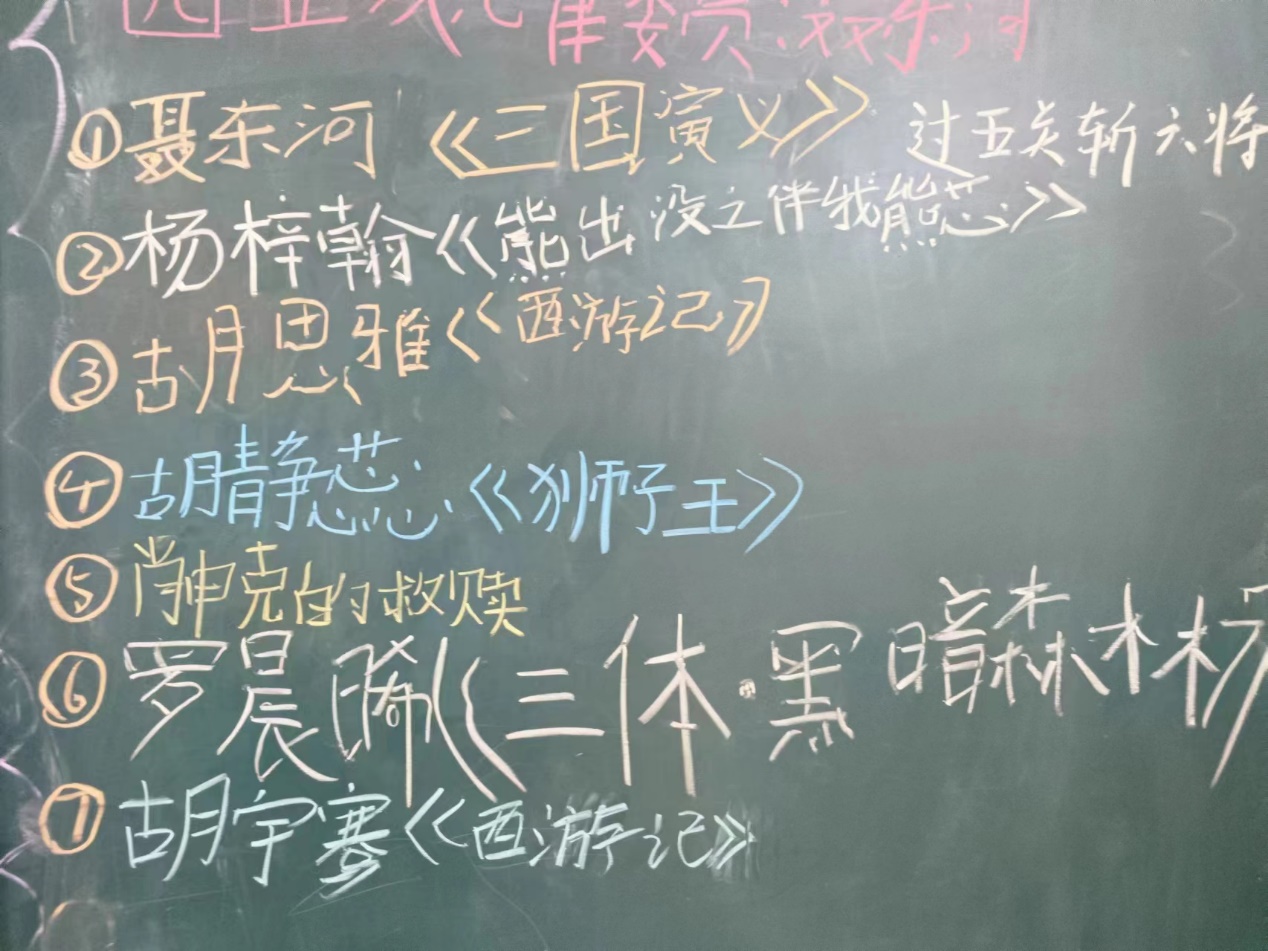 律委员:聂东河
①聂东河《三国演义》过五关斩六将
②杨梓翰《熊出没之伴我熊芯》
③胡思雅《西游记》
④胡静芯《狮子王》
⑤肖申克的救赎
⑥罗晨晞《三体·黑暗森林
⑦胡宇赛《西游记》